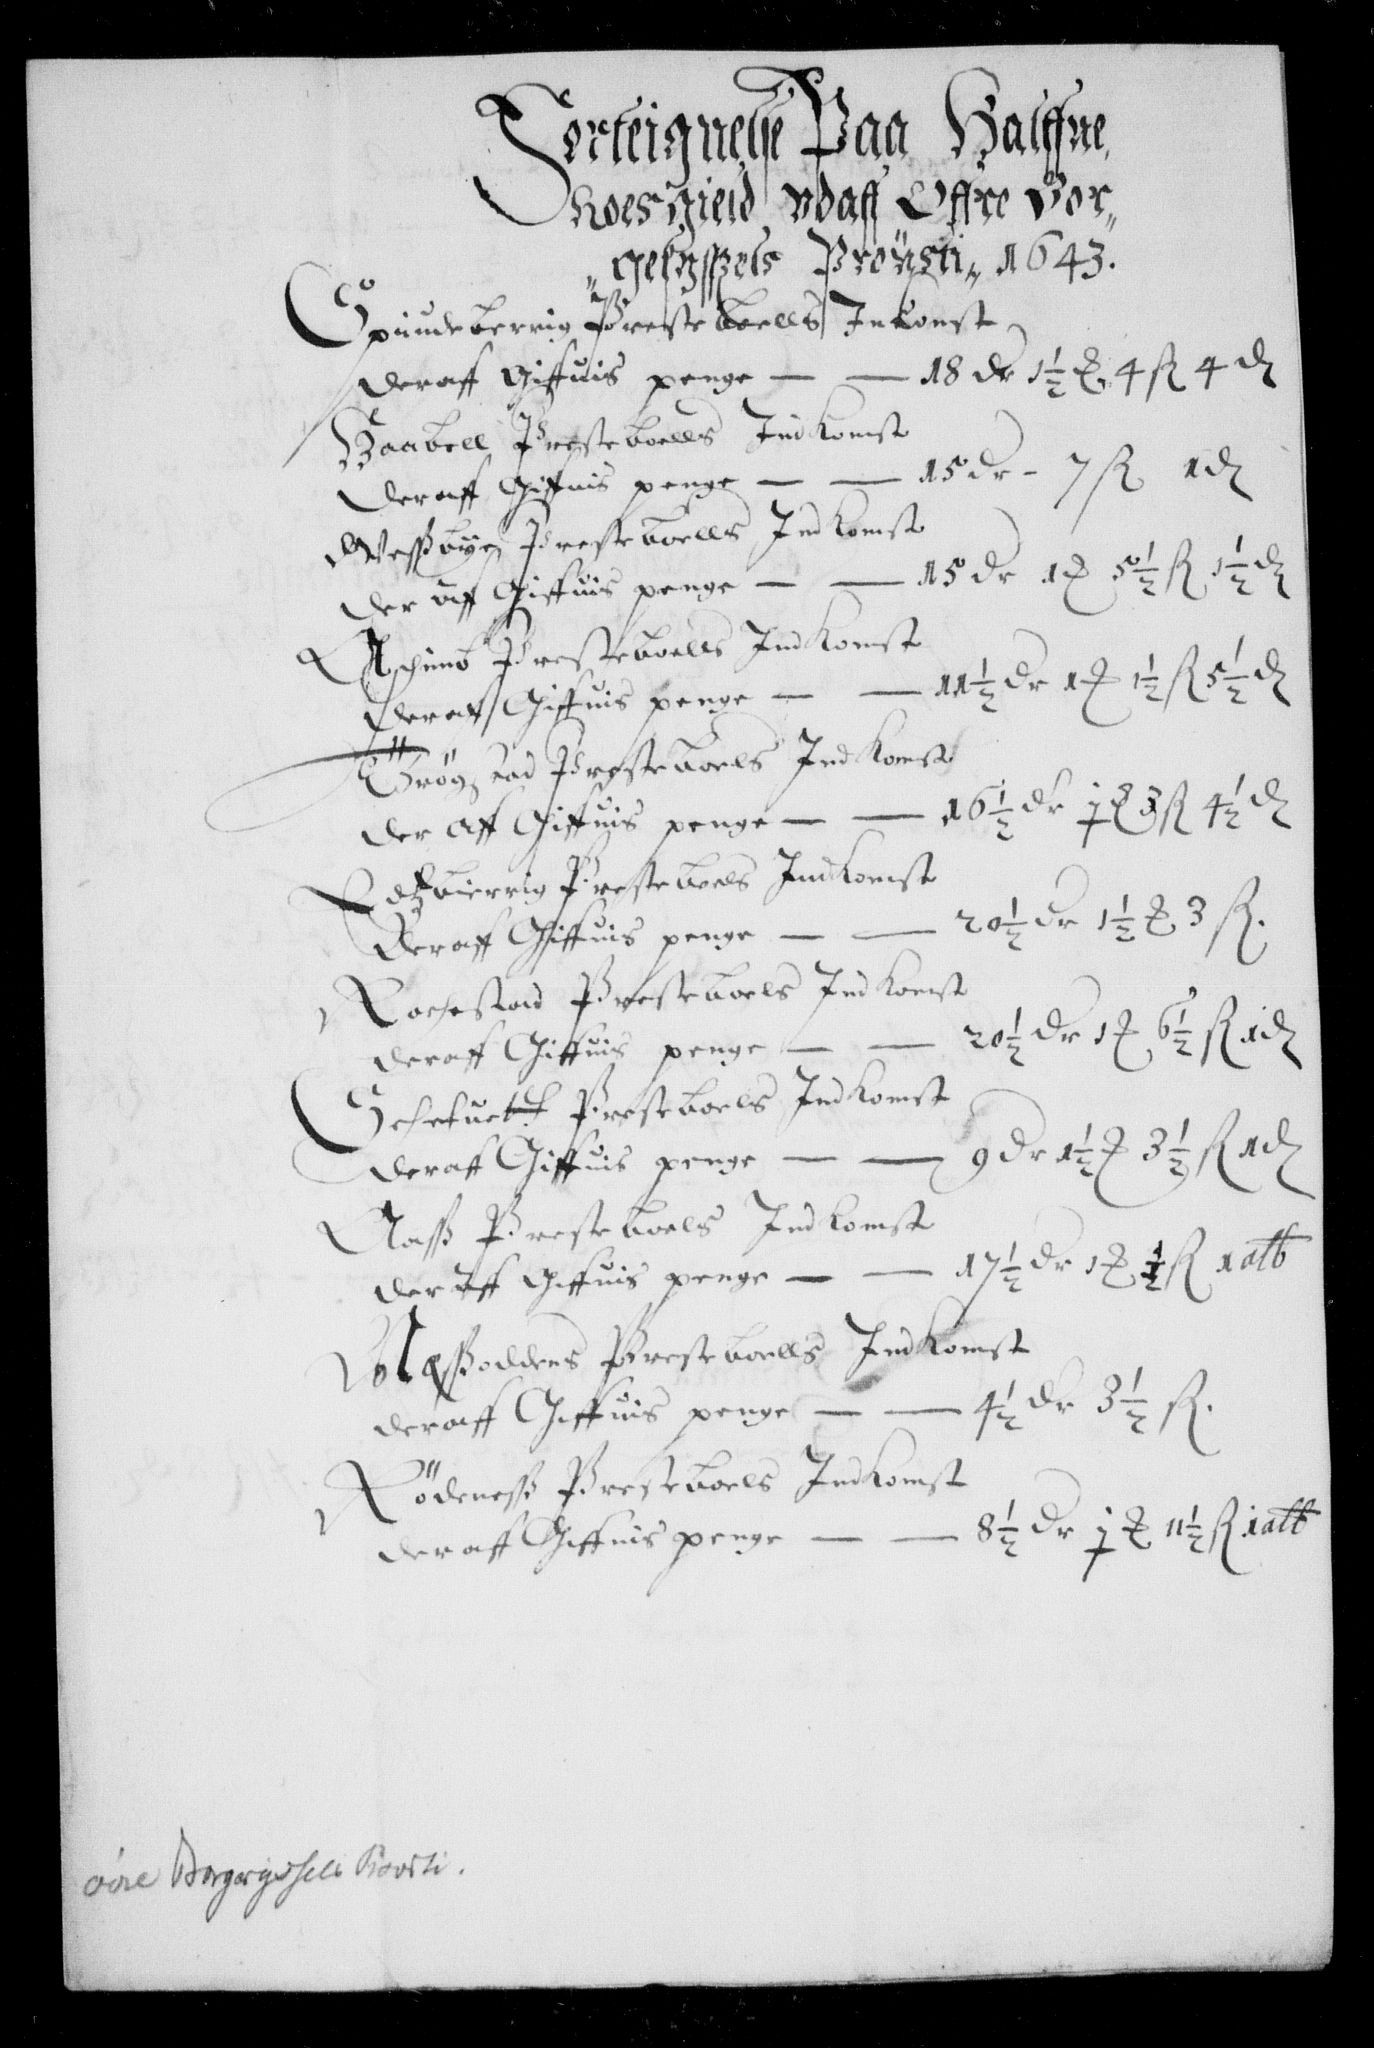 Forteignelse Paa Halffue
Roesgield vdaff Öffre Bor„
„gesyszels Prousti„ 1643.
Spiudeberrig Presteboells Inkomst
deraff Giffuis penge — — 18 dr 1½ ꝛ 4 ß 4 ₰
Haabell Presteboells Indkomst
deraff Giffuis penge — — 15 dr - 7 ß 1 ₰
Wessbye Presteboells Indkomst
der aff Giffuis penge — — 15 dr 1 ꝛ 5½ ß 1½ ₰
Aschimb Presteboells Indkomst
deraff Giffuis penge — — 11½ dr 1 ꝛ 1½ ß 5½ ₰
Trögstad Presteboels Indkomst
der aff Giffuis penge — — 16½ dr j ꝛ 3 ß 4½ ₰
Edtzbierrig Presteboels Indkomst
deraff Giffuis penge — — 20½ dr 1½ ꝛ 3 ß.
Rachestad Presteboels Indkomst
deraff Giffuis penge — — 20½ dr 1 ꝛ 6½ ß 1 ₰
Schiptuett Presteboels Indkomst
deraff Giffuis penge — — 9 dr 1½ ꝛ 3½ ß 1 ₰
Aass Presteboels Indkomst
deraff Giffuis penge — — 17½ dr 1 ꝛ ½ ß 1 alb
Næssoddens Presteboells Indkomst
deraff Giffuis penge — — 4½ dr 3½ ß.
Rödeness Presteboels Indkomst
deraff Giffuis penge — — 8½ dr j ꝛ 11½ ß 1 alb
övre Borgesyssels Provsti.